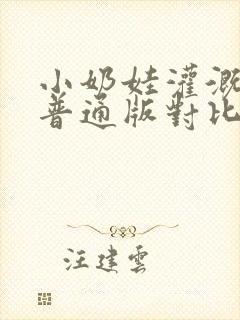 小奶娃灌溉
普通版對比
汪建雲